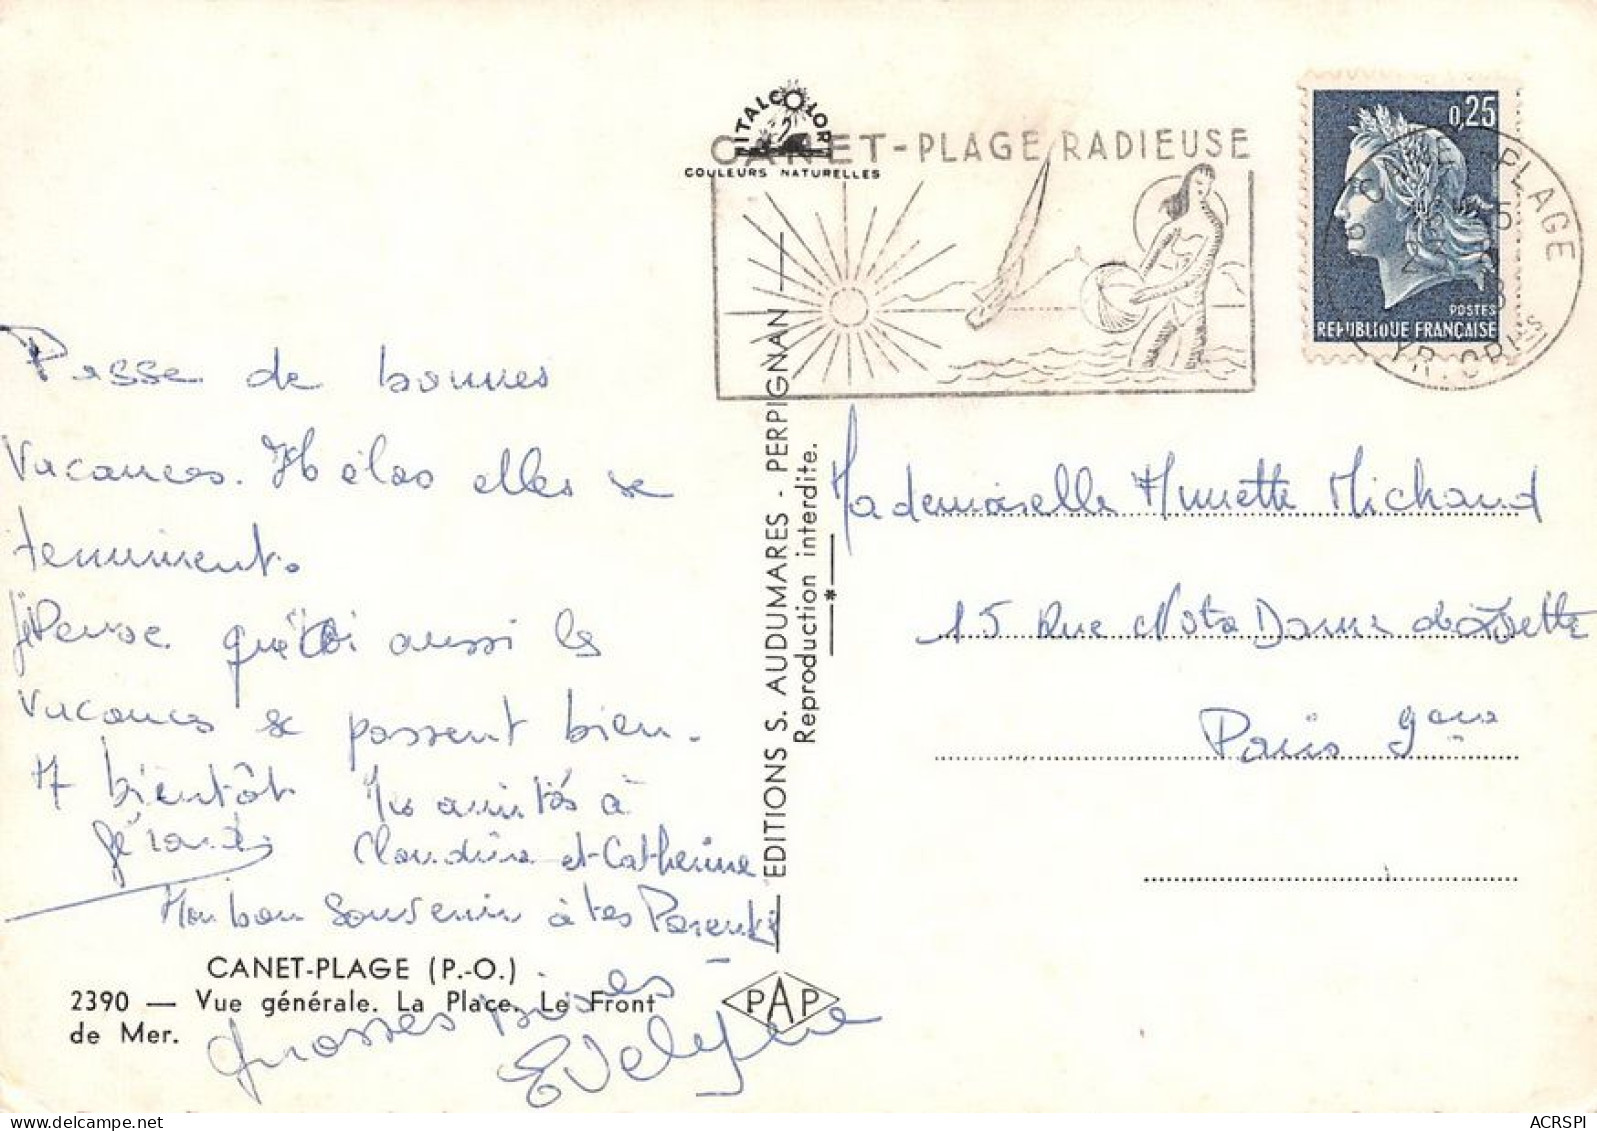 ITALCOLOR
COULEURS NATURELLES
CANET-PLAGE RADIEUSE
0,25
POSTES
REPUBLIQUE FRANÇAISE
CANET-PLAGE
PYR. ORI^LES
Passe de bonnes
vacances. Hélas elles se
terminent.
Je Pense que toi aussi les
vacances se passent bien.
A bientôt Mes amitiés à
Gérard Claudine et Catherine
Mon bon Souvenir à tes Parents
grosses bises
Evelyne
CANET-PLAGE (P.-O.)
2390 — Vue générale. La Place. Le Front
de Mer.
EDITIONS S. AUDUMARES - PERPIGNAN
Reproduction interdite.
PAP
Mademoiselle Annette Michaud
15 Rue Notre Dame de Lorette
Paris 9eme
ACRSPI